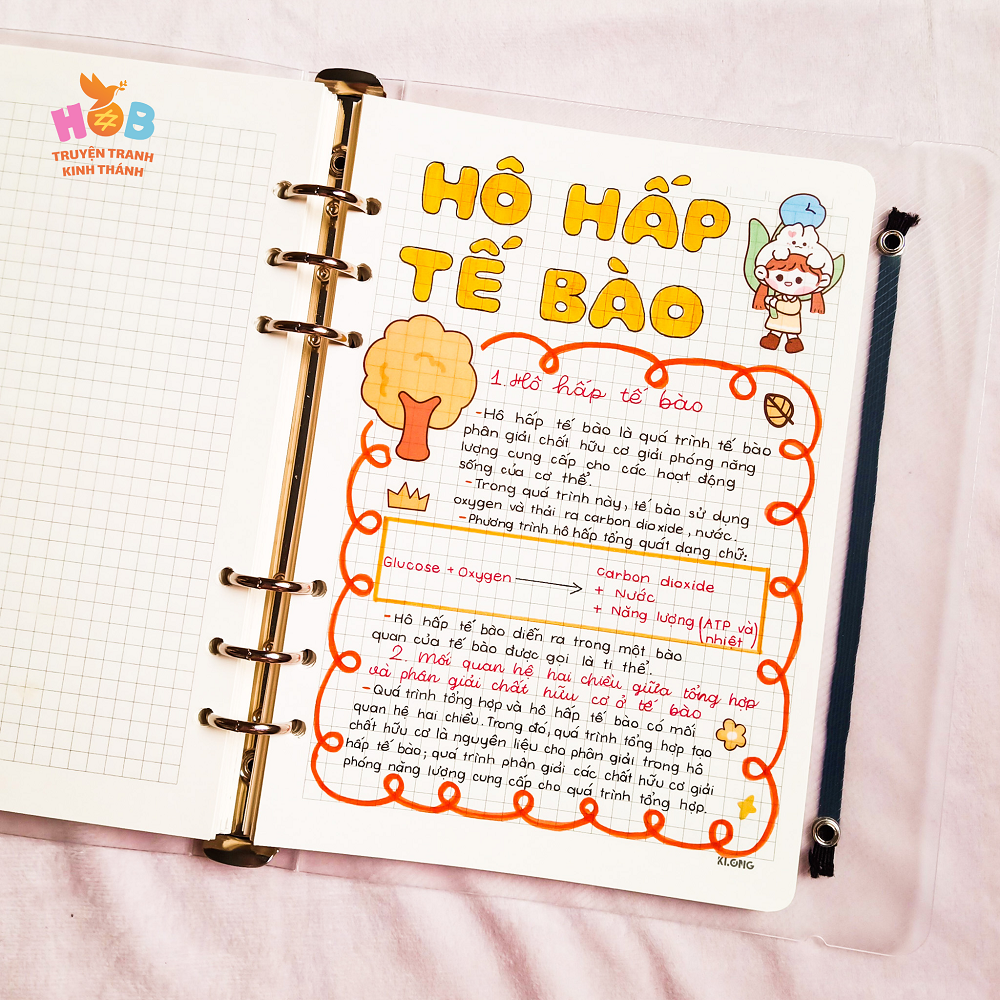 HOB
TRUYỆN TRANH
KINH THÁNH
HÔ HẤP
TẾ BÀO
1. Hô hấp tế bào
- Hô hấp tế bào là quá trình tế bào
phân giải chất hữu cơ giải phóng năng
lượng cung cấp cho các hoạt động
sống của cơ thể.
- Trong quá trình này, tế bào sử dụng
oxygen và thải ra carbon dioxide, nước.
- Phương trình hô hấp tổng quát dạng chữ:
Glucose + Oxygen → Carbon dioxide
+ Nước
+ Năng lượng (ATP và
nhiệt)
- Hô hấp tế bào diễn ra trong một bào
quan của tế bào được gọi là ti thể.
2. Mối quan hệ hai chiều giữa tổng hợp
và phân giải chất hữu cơ ở tế bào
- Quá trình tổng hợp và hô hấp tế bào có mối
quan hệ hai chiều. Trong đó, quá trình tổng hợp tạo
chất hữu cơ là nguyên liệu cho phân giải trong hô
hấp tế bào; quá trình phân giải các chất hữu cơ giải
phóng năng lượng cung cấp cho quá trình tổng hợp.
KLONG